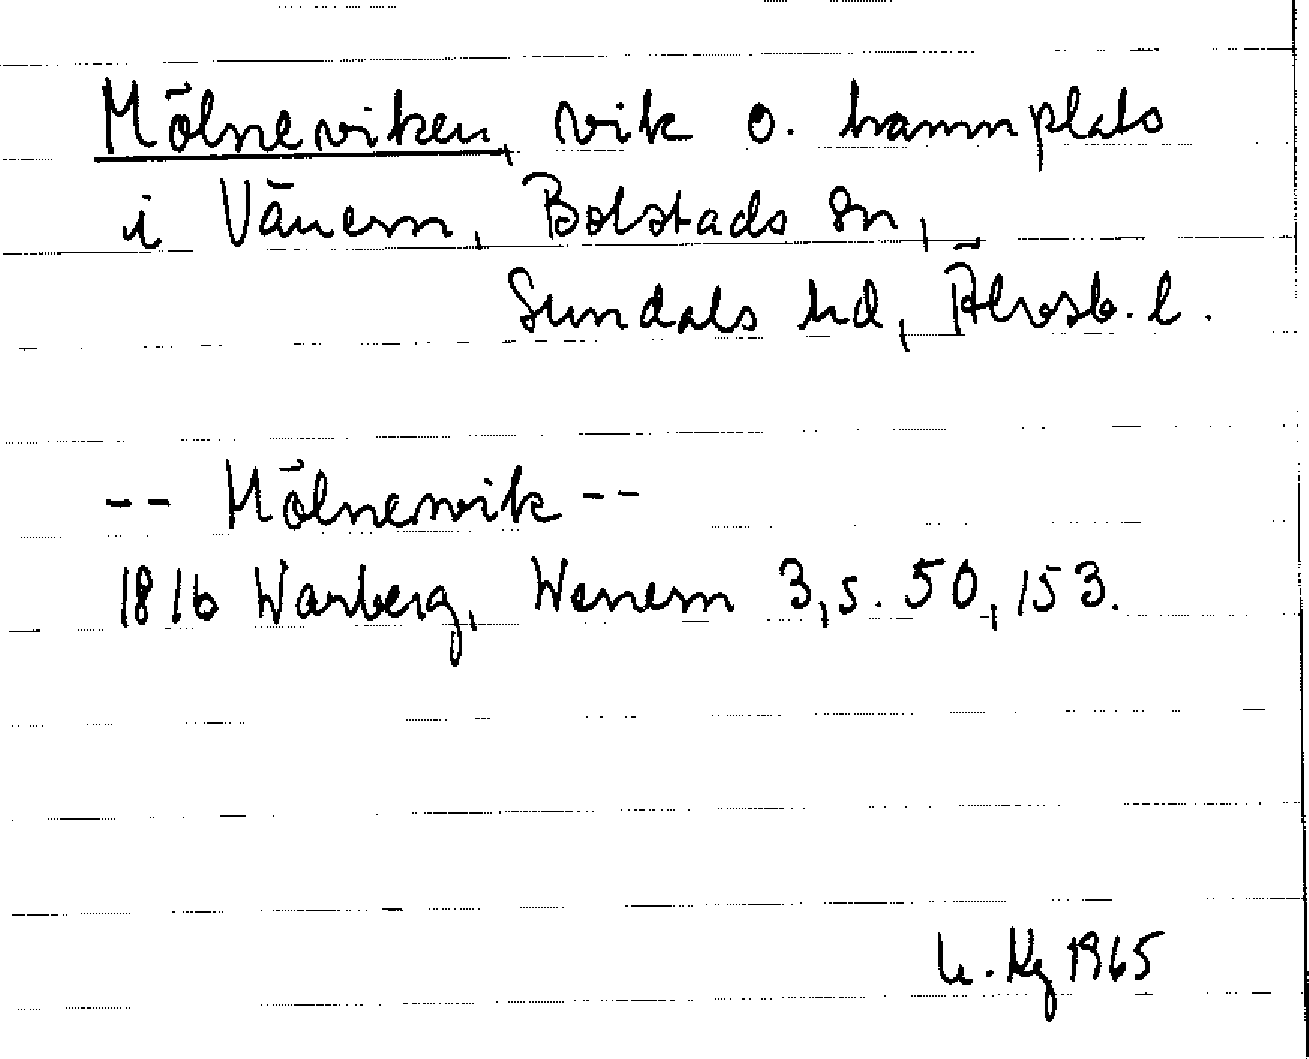 Mölneviken, vik o. hamnplats
i Vänern, Bolstads sn,
Sundals hd, Älvsb. l.
-- Mölnervik --
1816 Warberg, Wenern 3, s. 50, 153.
1965